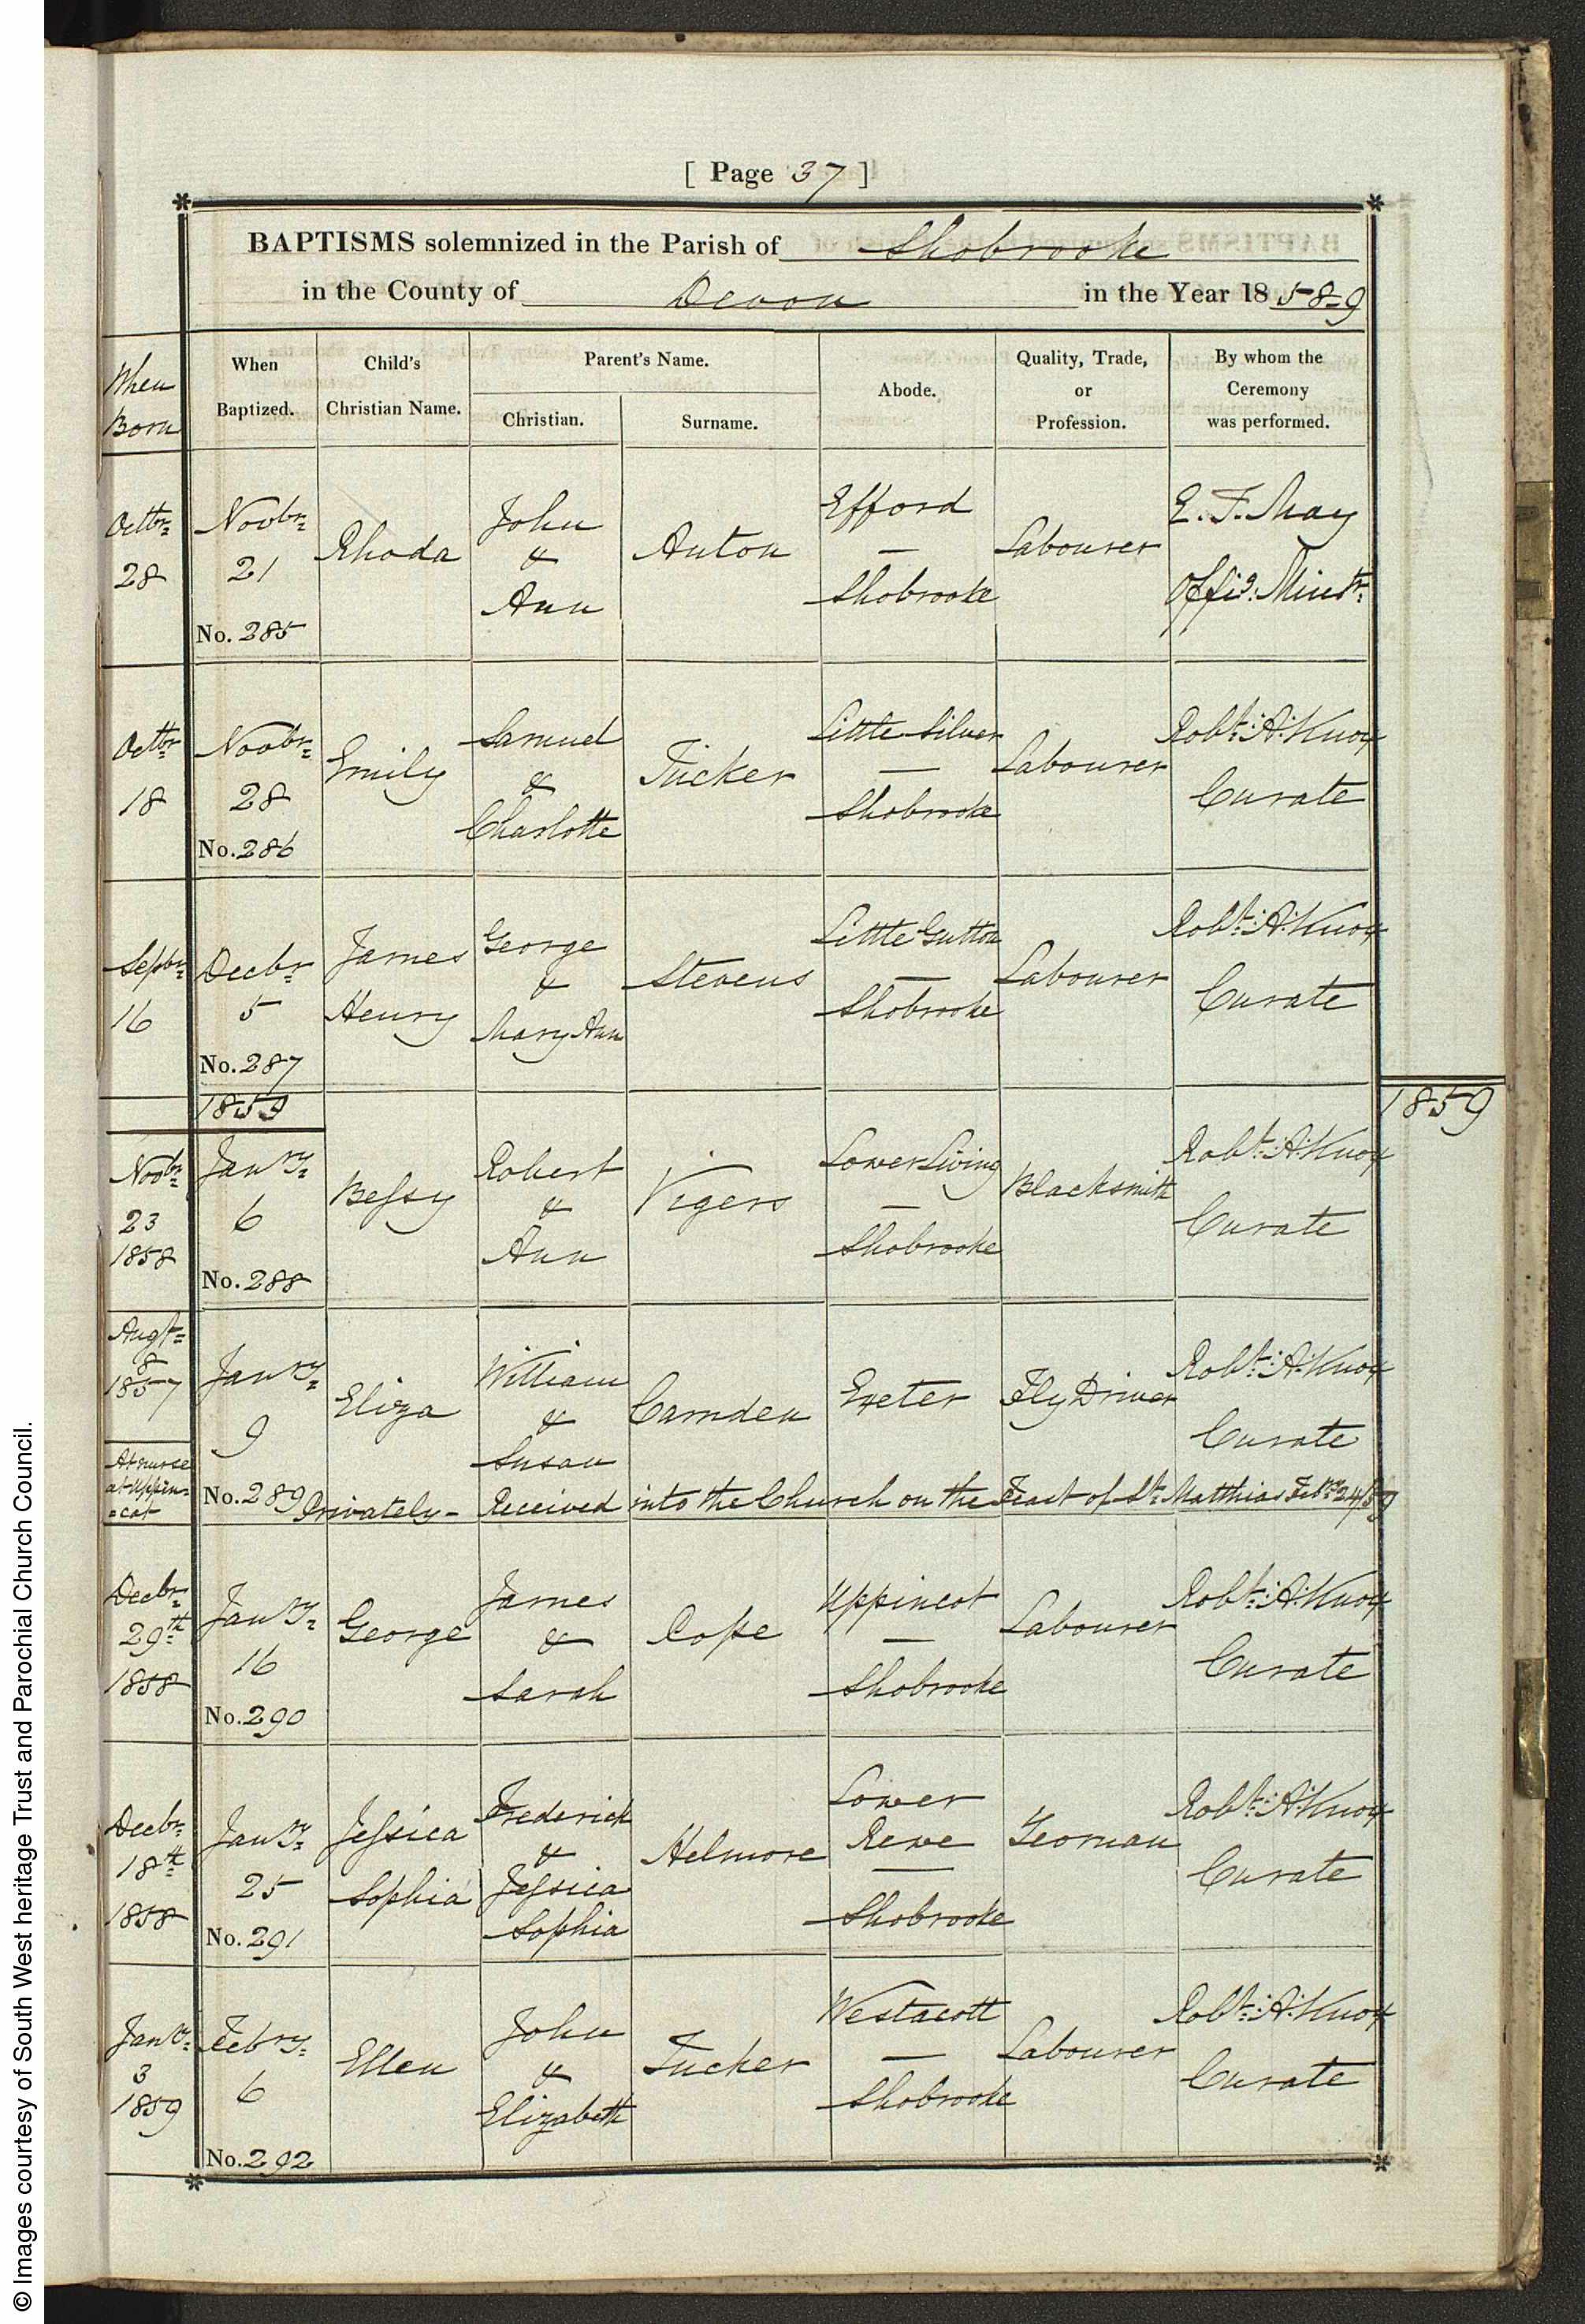 [ Page 37 ]
BAPTISMS solemnized in the Parish of Shobrooke
in the County of Devon in the Year 1858-9
When Born
When Baptized.
Child's Christian Name.
Parent's Name.
Christian.
Surname.
Abode.
Quality, Trade, or Profession.
By whom the Ceremony was performed.
Octbr
28
Novbr
21
No. 285
Rhoda
John
&
Ann
Anton
Efford
—
Shobrooke
Labourer
E. F. May
Offig. Minstr.
Octbr
18
Novbr
28
No. 286
Emily
Samuel
&
Charlotte
Tucker
Little Silver
—
Shobrooke
Labourer
Robt. A. Knox
Curate
Septbr
16
Decbr
5
No. 287
James
Henry
George
&
Mary Ann
Stevens
Little Gutton
—
Shobrooke
Labourer
Robt. A. Knox
Curate
1859
1859
Novbr
23
1858
Janry
6
No. 288
Bessy
Robert
&
Ann
Vigers
Lower Living
—
Shobrooke
Blacksmith
Robt. A. Knox
Curate
Augt
8
1857
At nurse
at Uppin=
=cot
Janry
9
No. 289
Eliza
William
&
Susan
Camden
Exeter
Fly Driver
Robt. A. Knox
Curate
Privately - Received into the Church on the Feast of St. Matthias Febry 24/59
Decbr
29th
1858
Janry
16
No. 290
George
James
&
Sarah
Cope
Uppincot
—
Shobrooke
Labourer
Robt. A. Knox
Curate
Decbr
18th
1858
Janry
25
No. 291
Jessica
Sophia
Frederick
&
Jessica
Sophia
Helmore
Lower
Rewe
—
Shobrooke
Yeoman
Robt. A. Knox
Curate
Janry
3
1859
Febry
6
No. 292
Ellen
John
&
Elizabeth
Tucker
Westacott
—
Shobrooke
Labourer
Robt. A. Knox
Curate
© Images courtesy of South West heritage Trust and Parochial Church Council.